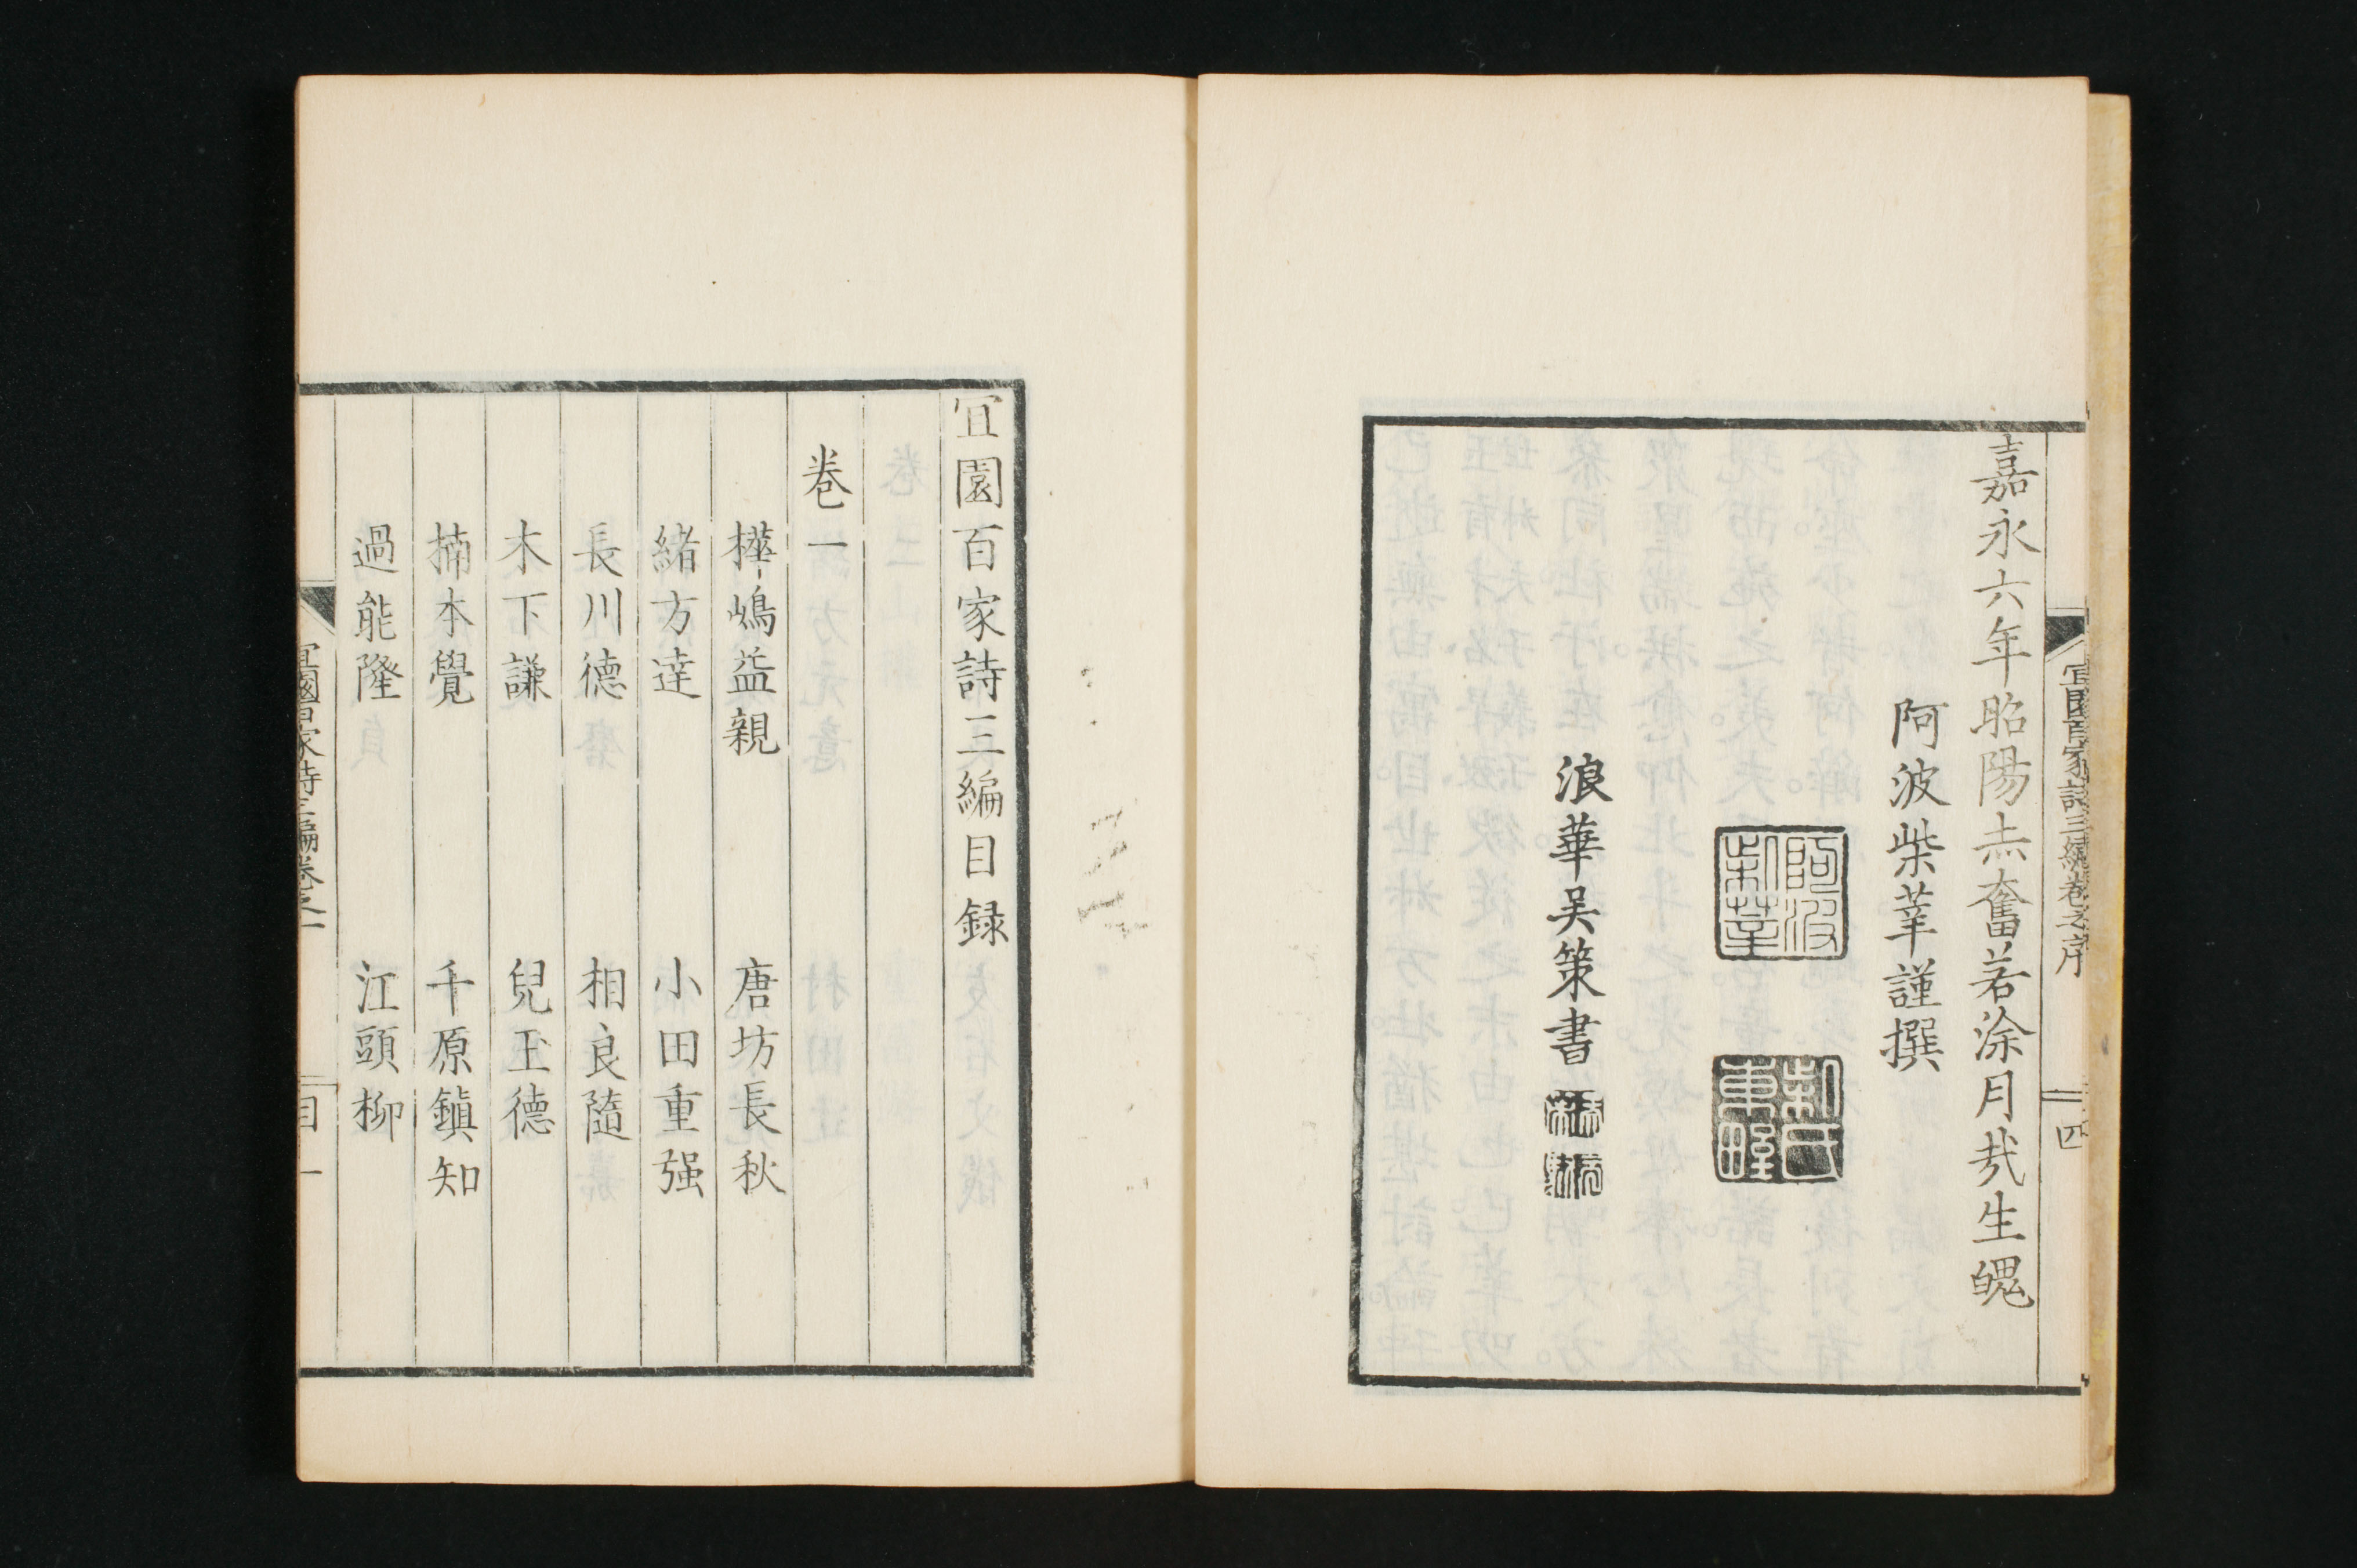 嘉永六年昭陽赤奮若涂月哉生魄
阿波柴莘謹撰
浪華吳策書
宜園百家詩三編卷之序
四
宜園百家詩三編目録
卷一
樺嶋益親
唐坊長秋
緒方達
小田重强
長川德
相良隨
木下謙
兒玉德
楠本覺
千原鎮知
過能隆
江頭柳
宜園百家詩三編卷之一
目一